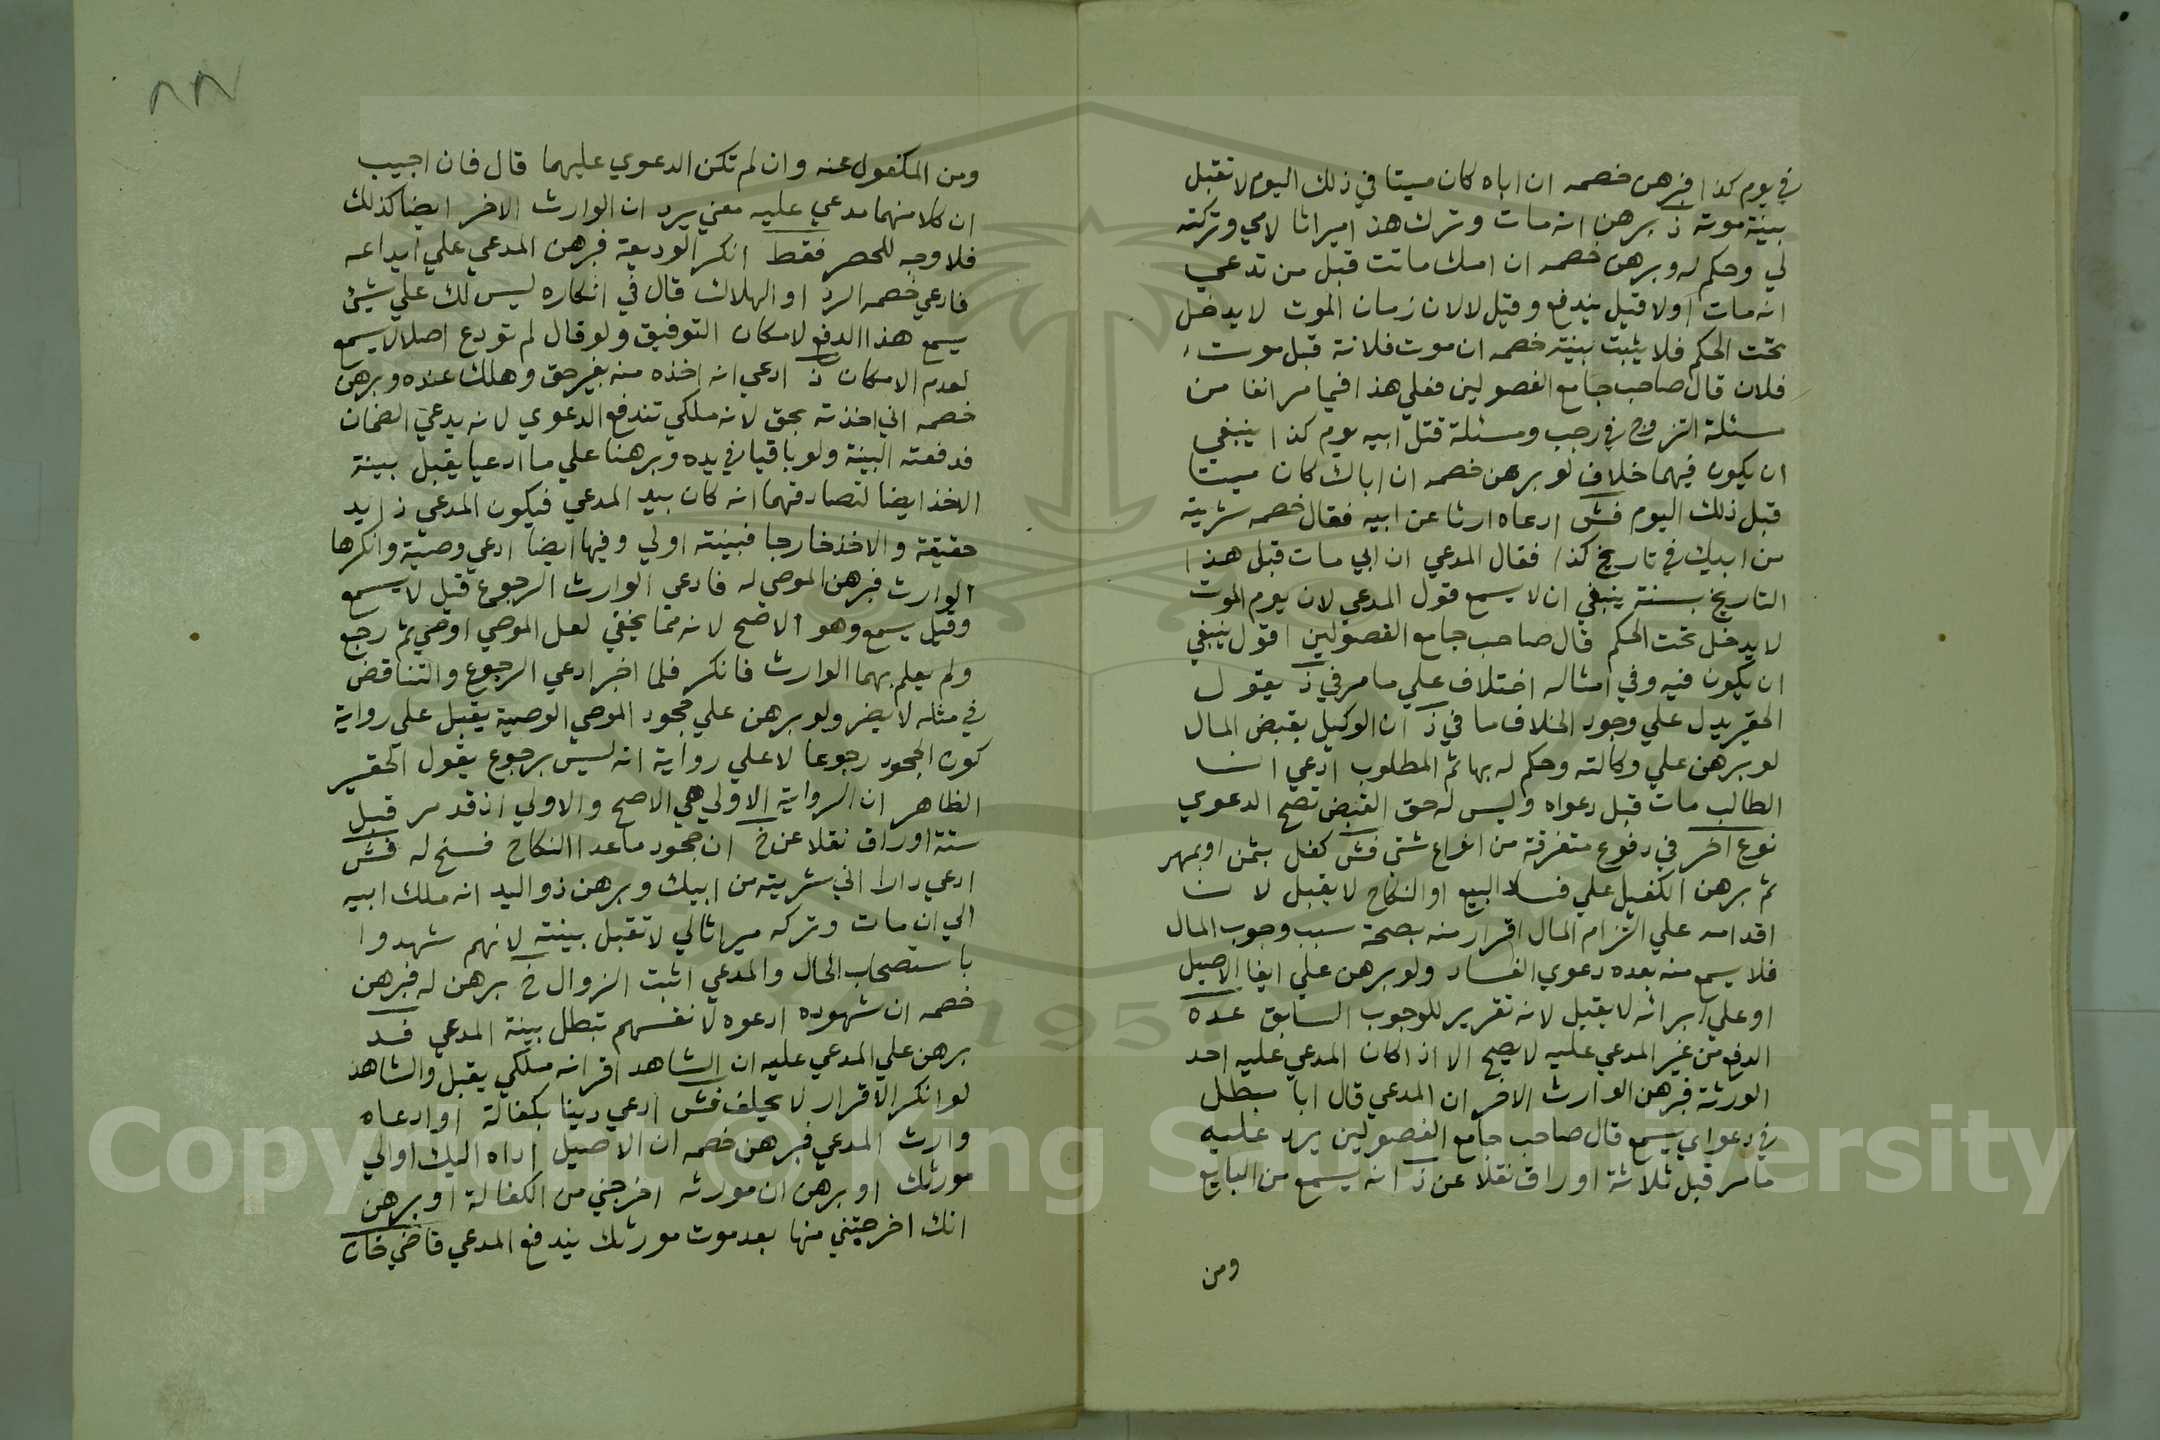 في يوم كذا فبرهن خصمه ان اباه كان ميتا في ذلك اليوم لا تقبل
بينة موته ذ برهن انه مات وترك هذا ميراثا لامي وتركته
لي وحكم له وبرهن خصمه ان امك ماتت قبل من تدعي
انه مات اولا قيل يندفع وقيل لا لان زمان الموت لا يدخل
تحت الحكم فلا يثبت ببينة خصمه ان موت فلانة قبل موت
فلان قال صاحب جامع الفصولين فعلي هذا فيما مر انفا من
مسئلة التزوج في رجب ومسئلة قتل ابيه يوم كذا ينبغي
ان يكون فيهما خلاف لو برهن خصمه ان اباك كان ميتا
قبل ذلك اليوم فش ادعاه ارثا عن ابيه فقال خصمه شريته
من ابيك في تاريخ كذا فقال المدعي ان ابي مات قبل هذا
التاريخ بسنة ينبغي ان لا يسمع قول المدعي لان يوم الموت
لا يدخل تحت الحكم قال صاحب جامع الفصولين اقول ينبغي
ان يكون فيه وفي امثاله اختلاف علي ما مر في ذ يقول
الحقير يدل علي وجود الخلاف ما في ذ ان الوكيل بقبض المال
لو برهن علي وكالته وحكم له بها ثم المطلوب ادعي ان
الطالب مات قبل دعواه وليس له حق القبض تصح الدعوي
نوع اخر في دفوع متفرقة من انواع شتي فش كفل بثمن او بمهر
ثم برهن الكفيل علي فساد البيع او النكاح لا يقبل لان
اقدامه علي التزام المال اقرار منه بصحة سبب وجوب المال
فلا يسمع منه بعده دعوي الفساد ولو برهن علي ايفا الاصيل
او علي ابرائه لا يقبل لانه تقرير للوجوب السابق عده
الدفع من غير المدعي عليه لا يصح الا اذا كان المدعي عليه احد
الورثة فبرهن الوارث الاخر ان المدعي قال انا مبطل
في دعواي يسمع قال صاحب جامع الفصولين يرد عليه
ما مر قبل ثلاثة اوراق نقلا عن ذ انه يسمع من البايع
ومن
٨٨
ومن المكفول عنه وان لم تكن الدعوي عليهما قال فان اجيب
ان كلا منهما مدعي عليه معني يرد ان الوارث الاخر ايضا كذلك
فلا وجه للحصر فقط انكر الوديعة فبرهن المدعي علي ايداعه
فادعي خصمه الرد او الهلاك قال في انكاره ليس لك علي شئ
يسمع هذا الدفع لامكان التوفيق ولو قال لم تودع اصلا لا يسمع
لعدم الامكان ذ ادعي انه اخذه منه بغير حق وهلك عنده وبرهن
خصمه اني اخذته بحق لانه ملكي تندفع الدعوي لانه يدعي الضمان
فدفعته البينة ولو باقيا في يده وبرهنا علي ما ادعيا يقبل بينة
الاخذ ايضا لتصادقهما انه كان بيد المدعي فيكون المدعي ذا يد
حقيقة والاخذ خارجا فبينته اولي وفيها ايضا ادعي وصية وانكرها
الوارث فبرهن الموصي له فادعي الوارث الرجوع قيل لا يسمع
وقيل يسمع وهو الاصح لانه مما يخفي لعل الموصي اوصي ثم رجع
ولم يعلم بهما الوارث فانكر فلما اخبر ادعي الرجوع والتناقض
في مثله لا يضر ولو برهن علي جحود الموصي الوصية يقبل علي رواية
كون الجحود رجوعا لا علي رواية انه ليس برجوع يقول الحقير
الظاهر ان الرواية الاولي هي الاصح والاولي اذ قد مر قبل
ستة اوراق نقلا عن خ ان جحود ما عدا النكاح فسخ له فش
ادعي دارا اني شريته من ابيك وبرهن ذو اليد انه ملك ابيه
الي ان مات وتركه ميراثا لي لا تقبل بينته لانهم شهدوا
باستصحاب الحال والمدعي اثبت الزوال خ برهن له فبرهن
خصمه ان شهوده ادعوه لانفسهم تبطل بينة المدعي فد
برهن علي المدعي عليه ان الشاهد اقر انه ملكي يقبل والشاهد
لو انكر الاقرار لا يحلف فش ادعي دينا بكفالة او ادعاه
وارث المدعي فبرهن خصمه ان الاصيل اداه اليك او الي
مورثك او برهن ان مورثه اخرجني من الكفالة او برهن
انك اخرجتني منها بعد موت مورثك يندفع المدعي قاضي خان
Copyright © King Saud University
195